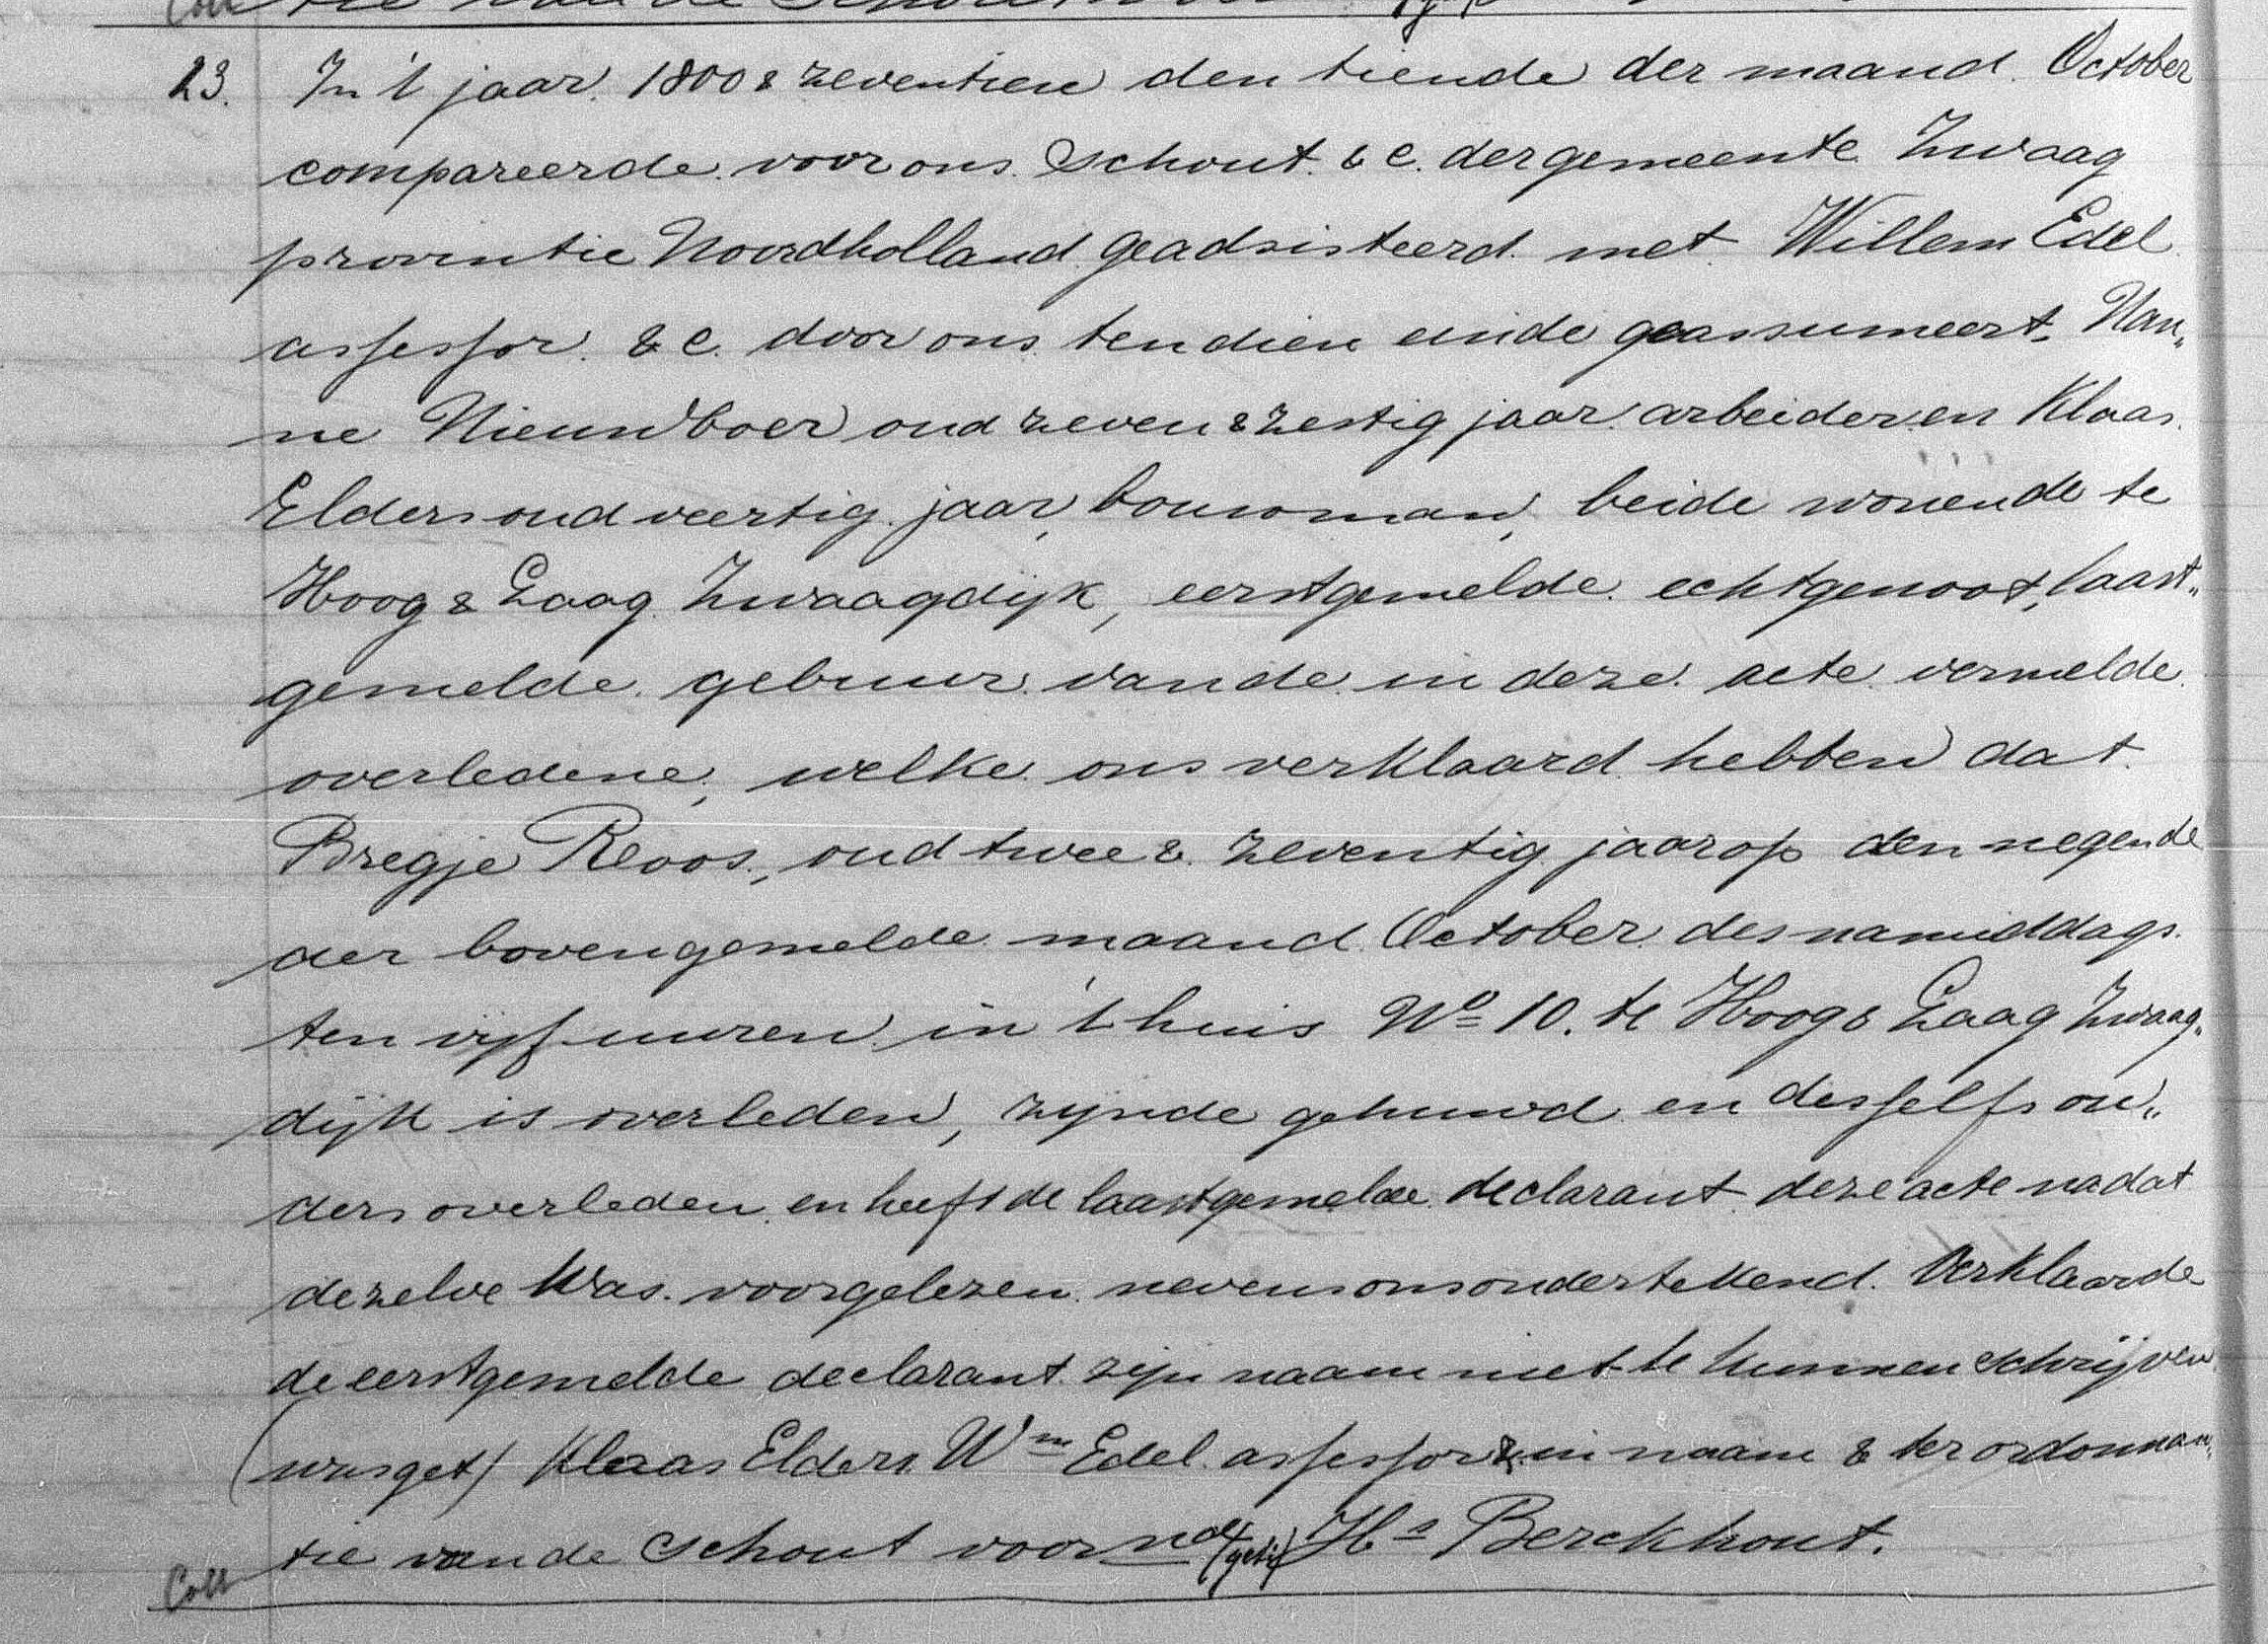 23. In 't jaar 1800 & zeventien den tiende der maand October
compareerde voor ons Schout &c. der gemeente Zwaag
provintie Noordholland geadsisteerd met Willem Edel
assessor &c. door ons ten dien einde geassumeert, Nan„
ne Nieuwboer oud zeven & zestig jaar arbeider en Klaas
Elders oud veertig jaar, bouwman, beide wonende te
Hoog & Laag Zwaagdijk, eerstgemelde echtgenoot, laast„
gemelde gebuur van de in deze acte vermelde
overledene, welke ons verklaard hebben dat
Bregje Roos, oud twee & zeventig jaar op den negende
der bovengemelde maand October des namiddags
ten vijf uuren in 't huis No 10. te Hoog & Laag Zwaag„
dijk is overleden, zynde gehuwd en desselfs ou„
ders overleden en heeft de laastgemelde declarant deze acte nadat
dezelve was voorgelezen nevens ons ondertekend. Verklaarde
de eerstgemelde declarant zijn naam niet te kunnen schrijven
(was get) Klaas Elders Wm Edel assessor & in naam & ter ordonnan„
tie van de Schout voornd (get) Hs Berckhout.
Coll